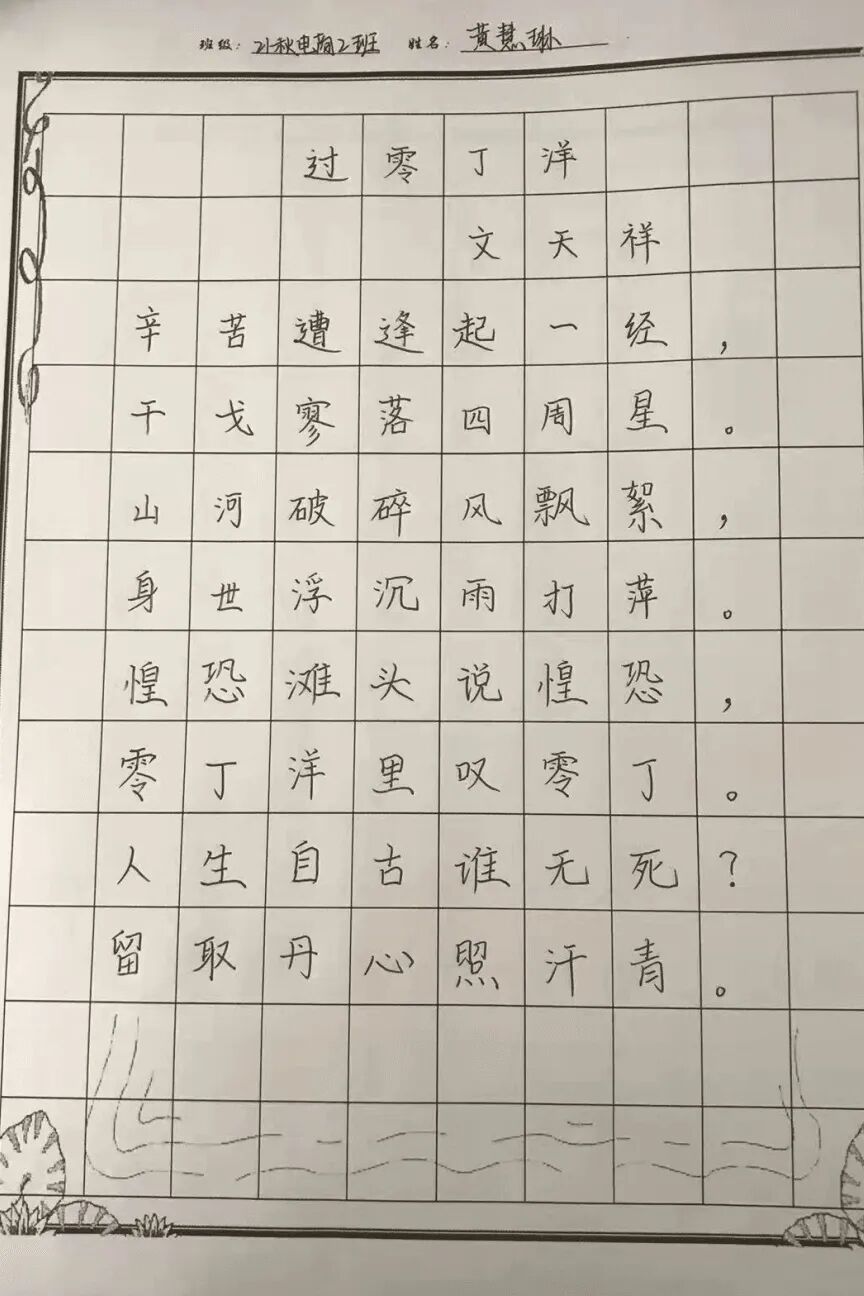 班级：21秋电商2班 姓名：黄慧琳
过零丁洋
文天祥
辛苦遭逢起一经，
干戈寥落四周星。
山河破碎风飘絮，
身世浮沉雨打萍。
惶恐滩头说惶恐，
零丁洋里叹零丁。
人生自古谁无死？
留取丹心照汗青。